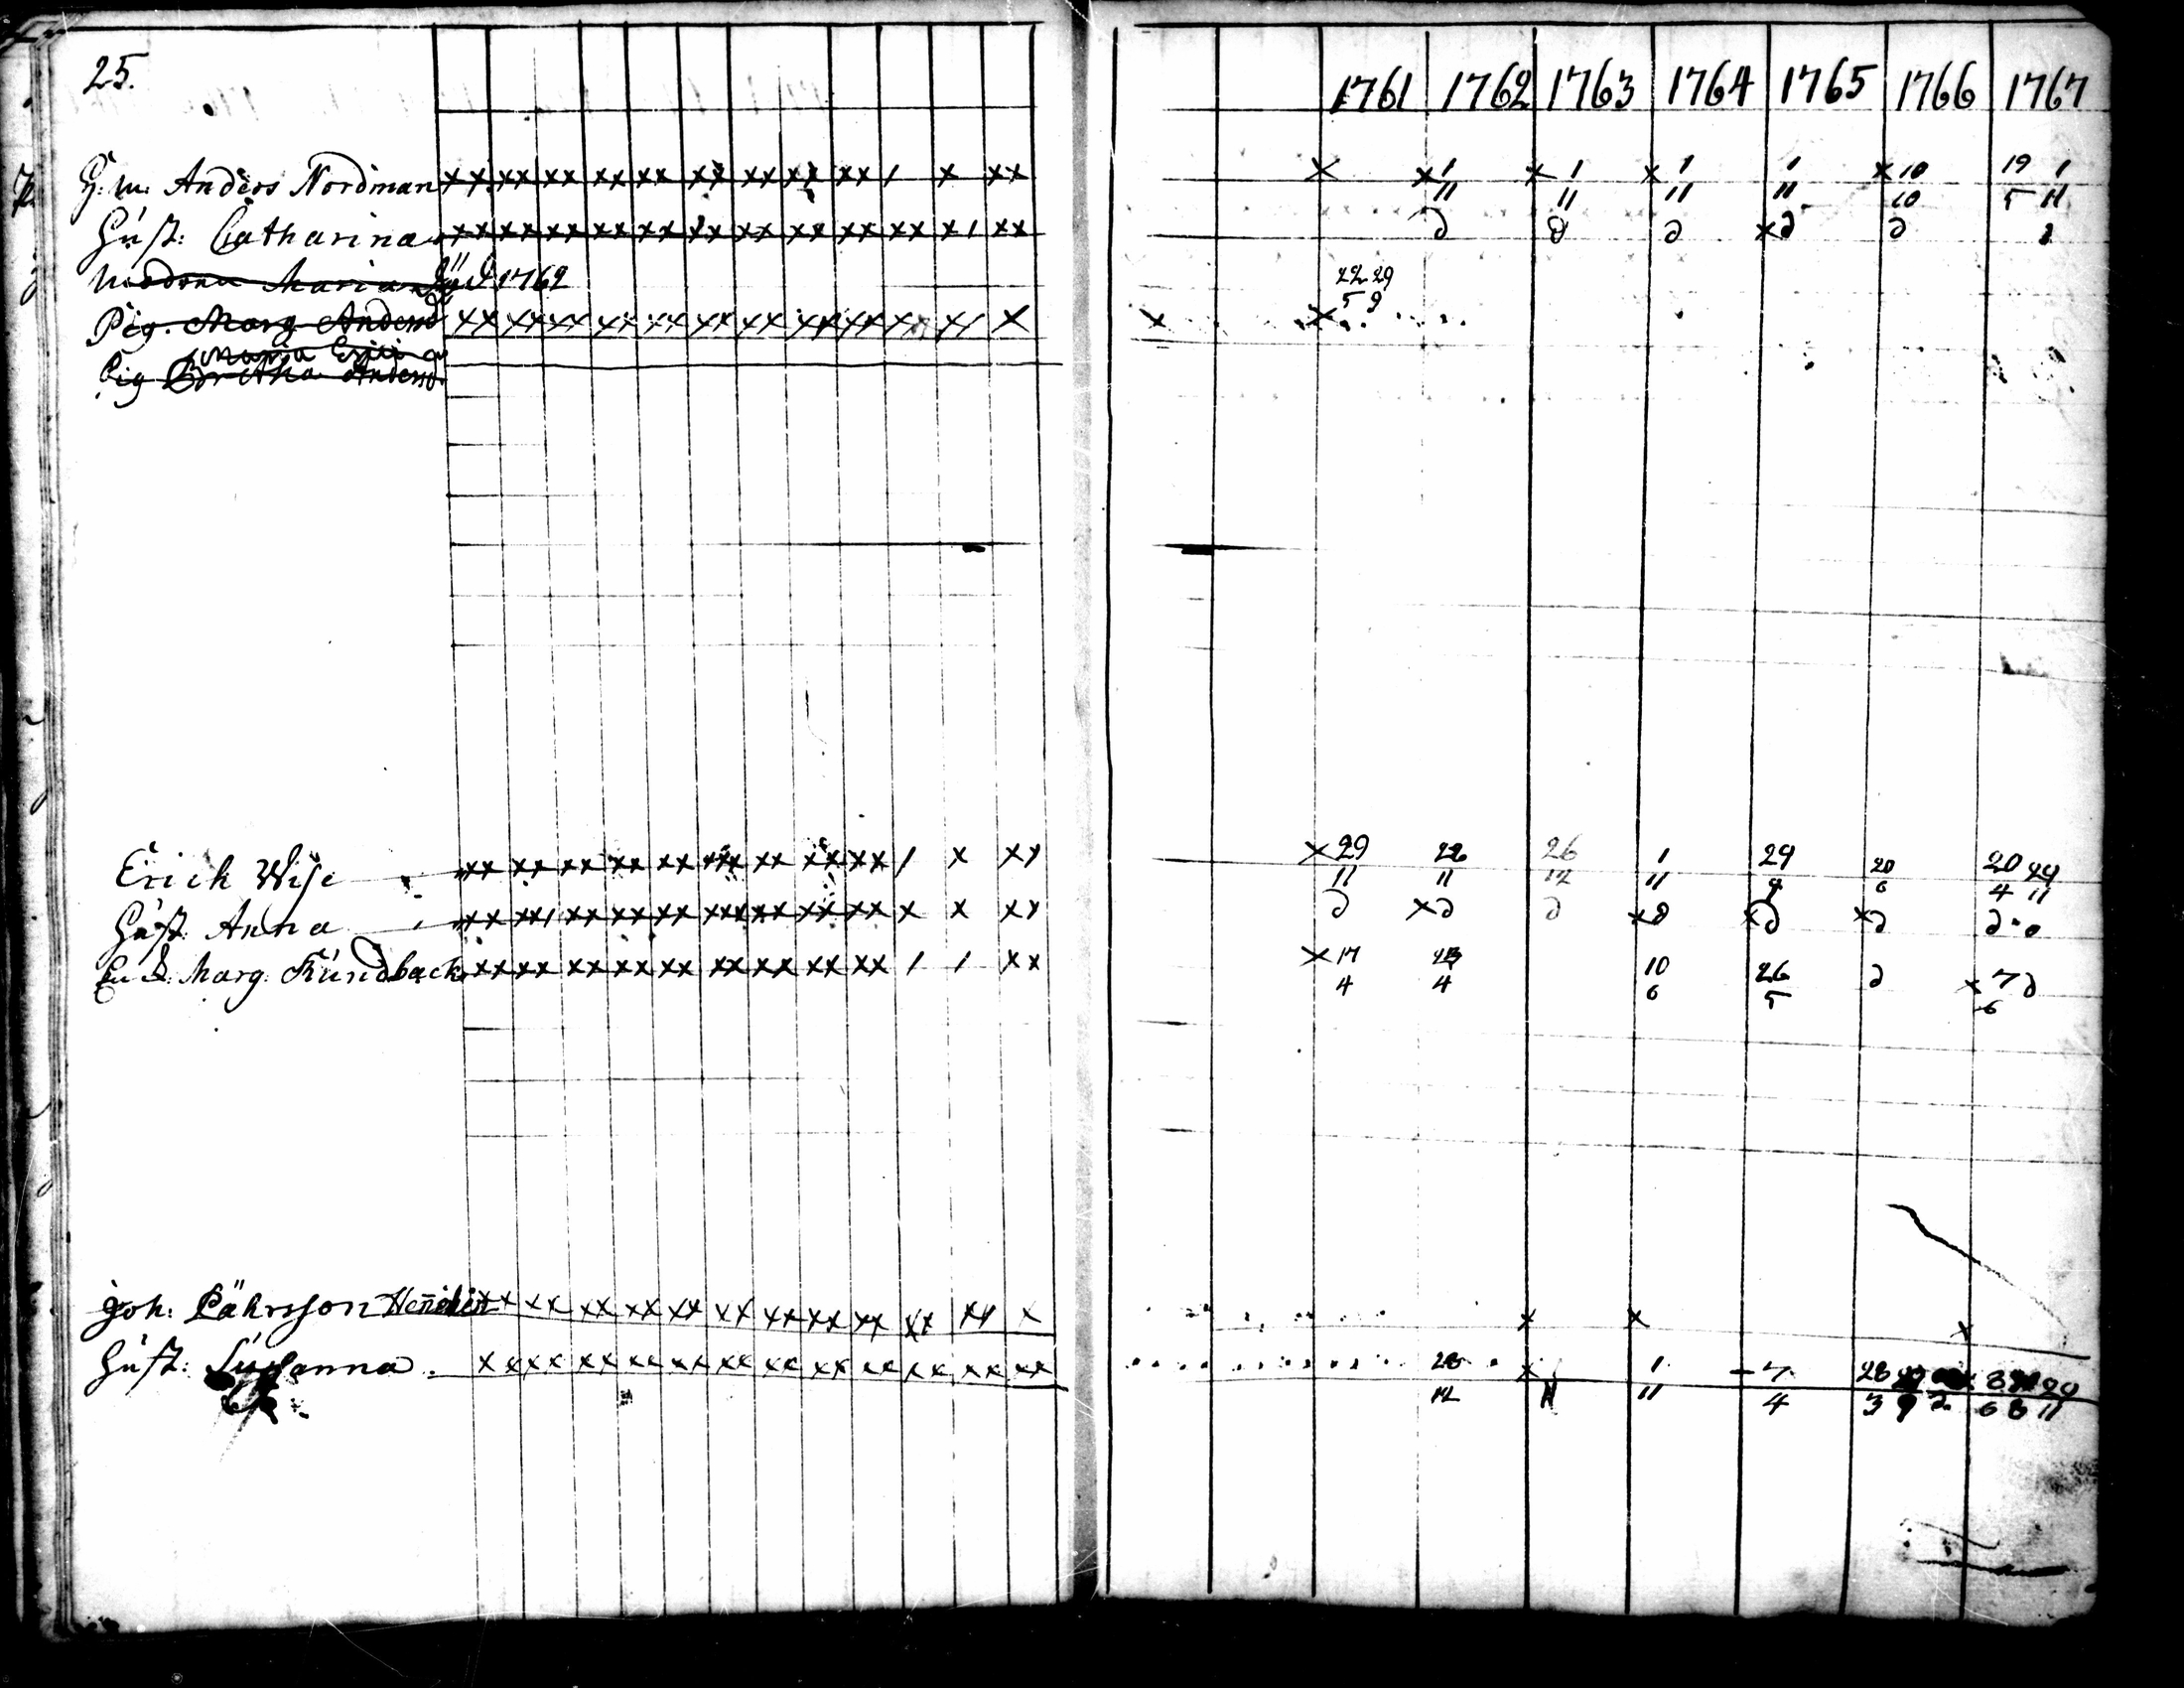 25.
1761 1762 1763 1764 1765 1766 1767
H. m. Anders Nordman xx xx xx xx xx xx xx xx xx / x xx
x x 1/11 x 1/11 x 1/11 1/11 x 10/10 19/5 1/11
Hust: Catharina xx xx xx xx xx xx xx xx xx xx x/ xx
∂ ∂ ∂ x∂ ∂ ∂
Modren Maria Död 1762
22/5 29/9
Pig. Marg. Andersd xx xx xx xx xx xx xx xx xx xx x/ x
x x
Maria Erici
Pig Bretha Andersd.
Erich Wise xx xx xx xx xx xx xx xx xx / x xx
x 29/11 26/11 26/12 1/11 29/9 20/6 20/4 29/11
Hust. Anna xx xx/ xx xx xx xx xx xx xx x x xx
∂ x∂ ∂ x∂ x∂ x∂ ∂
Marg. xx xx xx xx xx xx xx xx xx / / xx
x 17/4 /4 10/6 26/5 ∂ x 7/6 ∂
Joh: Pährsson xx xx xx xx xx xx xx xx xx xx x/ x
x x x
Hust: Susanna. x xx xx xx xx xx xx xx xx xx xx xx
28/12 x 1/11 7/4 28/3